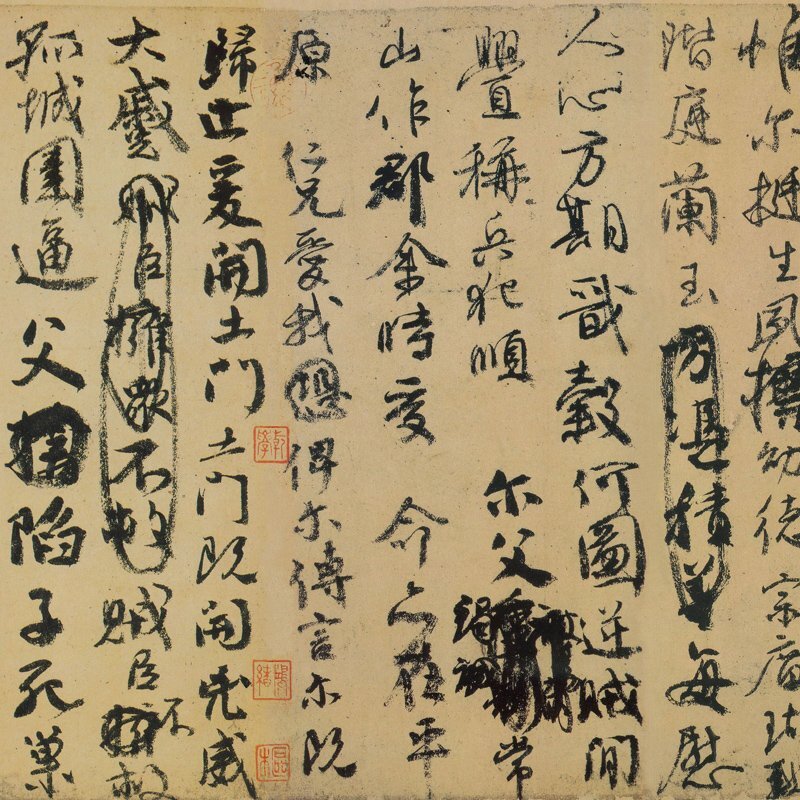 惟尔挺生夙標幼德宗廟瑚璉
階庭蘭玉方憑積善每慰
人心方期戩穀何圖逆賊閒
釁稱兵犯順尔父竭誠常
山作郡余時受命亦在平
原仁兄愛我俾尔傳言尔既
歸止爰開土門土門既開凶威
大蹙賊臣擁衆不救賊臣不救
孤城圍逼父陷子死巢